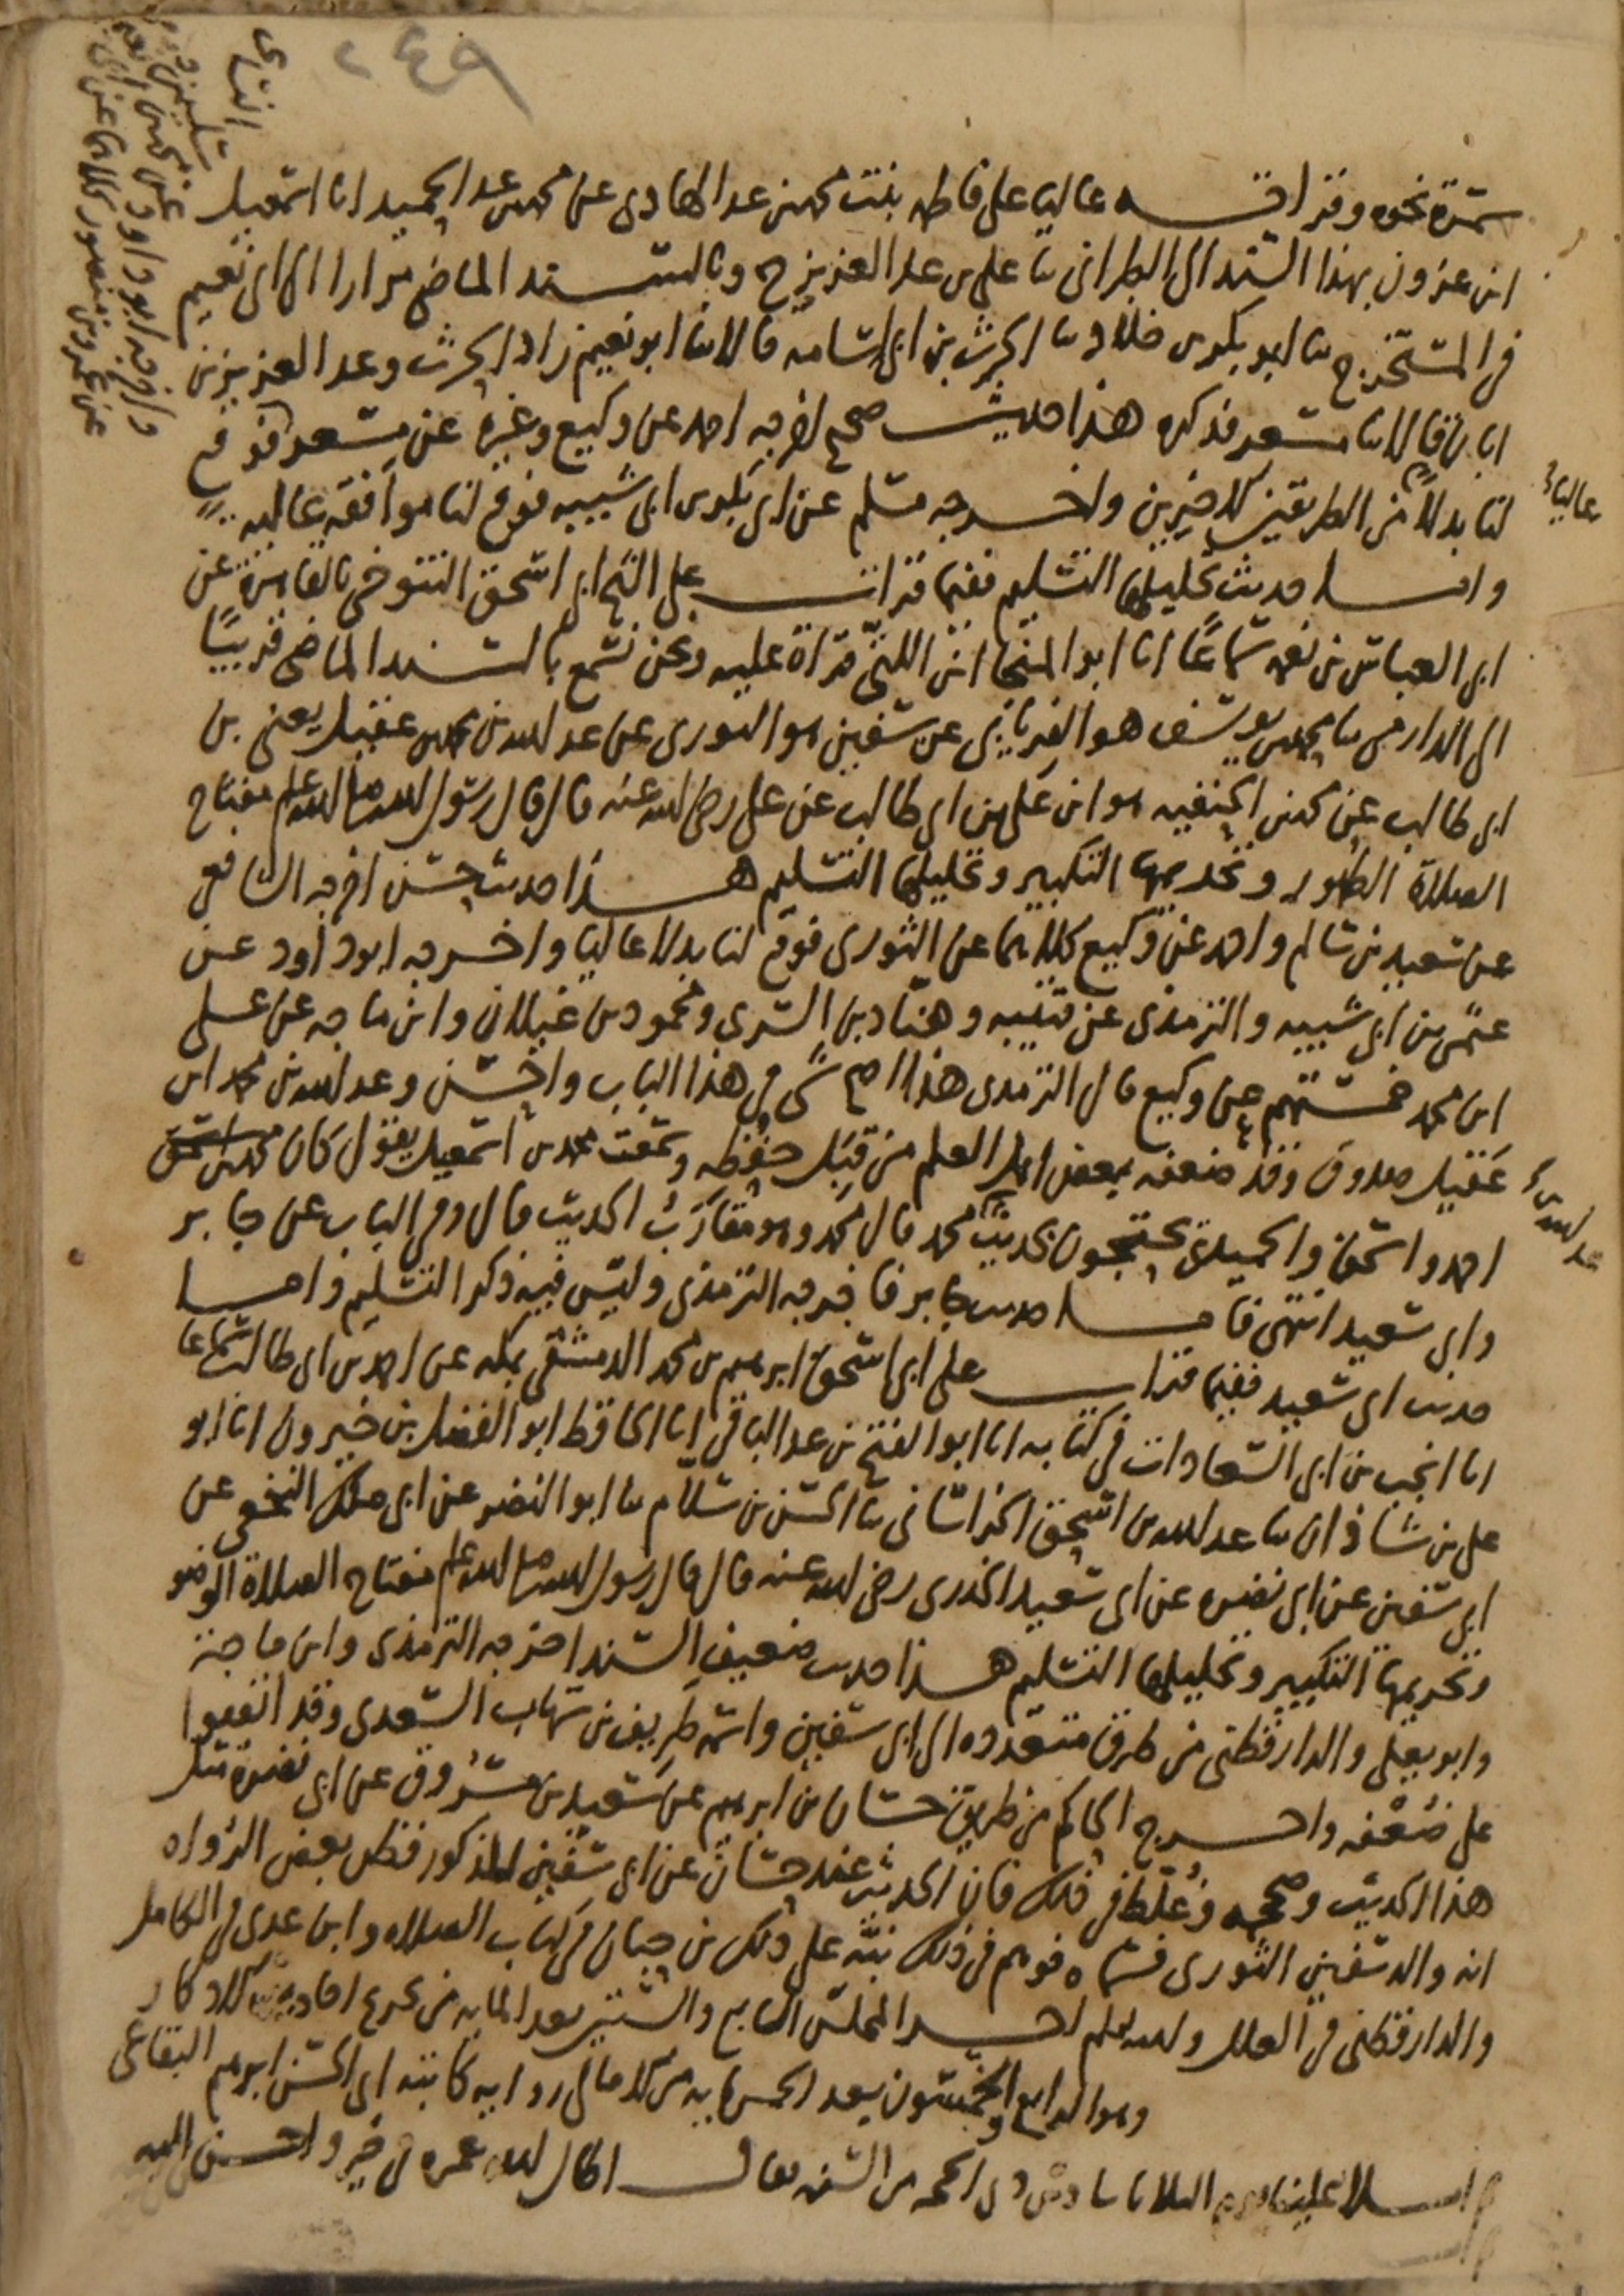 ٢٤٩
سمرة نحوه وقرأته عاليا على فاطمة بنت محمد بن عبد الهادي عن محمد بن عبد الحميد انا اسمعيل
ابن عزون بهذا السند الى الطبراني ثنا علي بن عبد العزيز ح وبالسند الماضي مرارا الى ابي نعيم
في المستخرج ثنا ابو بكر بن خلاد ثنا الحرث بن ابي اسامة قالا ثنا ابو نعيم زاد الحرث وعبد العزيز بن
ابان قالا ثنا مسعر فذكره هذا حديث صحيح اخرجه احمد عن وكيع وغيره عن مسعر فوقع
لنا بدلا من الطريقين الاخيرين واخرجه مسلم عن ابي بكر بن ابي شيبة فوقع لنا موافقة عالية
عاليا
واما حديث تحليلها التسليم ففيما قرأت على الشيخ ابي اسحق التنوخي بالقاهرة عن
ابي العباس بن نعمة سماعا انا ابو المنجا ابن اللتي قراءة عليه ونحن نسمع بالسند الماضي قريبا
الى الدارمي ثنا محمد بن يوسف هو الفريابي عن سفين هو الثوري عن عبد الله بن محمد بن عقيل يعني بن
ابي طالب عن محمد بن الحنفية هو ابن علي بن ابي طالب عن علي رضي الله عنه قال قال رسول الله صلى الله عليه وسلم مفتاح
الصلاة الطهور وتحريمها التكبير وتحليلها التسليم هذا حديث حسن اخرجه الشافعي
عن سعيد بن سالم واحمد عن وكيع كلاهما عن الثوري فوقع لنا بدلا عاليا واخرجه ابو داود عن
عثمن بن ابي شيبة والترمذي عن قتيبة وهناد بن السري ومحمود بن غيلان وابن ماجه عن علي
ابن محمد خمستهم عن وكيع قال الترمذي هذا اصح شي في هذا الباب واحسن وعبد الله بن محمد ابن
عقيل صدوق وقد ضعفه بعض اهل العلم من قبل حفظه وسمعت محمد بن اسمعيل يقول كان
احمد واسحق والحميدي يحتجون بحديث محمد قال محمد وهو مقارب الحديث قال وفي الباب عن جابر
وابي سعيد انتهى فاما حديث جابر فاخرجه الترمذي وليس فيه ذكر التسليم واما
حديث ابي سعيد ففيما قرأت على ابي اسحق ابرهيم بن محمد الدمشقي بمكة عن احمد بن ابي طالب سماعا
انا انجب بن ابي السعادات في كتابه انا ابو الفتح بن عبد الباقي انا الحافظ ابو الفضل بن خيرون انا ابو
علي بن شاذان ثنا عبد الله بن اسحق الخراساني ثنا الحسن بن سلام ثنا ابو النضر عن ابي ملك النخعي عن
ابي سفين عن ابي نضرة عن ابي سعيد الخدري رضي الله عنه قال قال رسول الله صلى الله عليه وسلم مفتاح الصلاة الوضو
وتحريمها التكبير وتحليلها التسليم هذا حديث ضعيف السند اخرجه الترمذي وابن ماجة
وابو يعلى والدارقطني من طرق متعددة الى ابي سفين واسمه طريف بن شهاب السعدي وقد اتفقوا
على ضعفه واخرج الحاكم من طريق حسان بن ابرهيم عن سعيد بن مسروق عن ابي نضرة مثل
هذا الحديث وصححه وغلط في ذلك فان الحديث عند حسان عن ابي سفين المذكور فظن بعض الرواه
انه والد سفين الثوري فسماه فوهم في ذلك نبه على ذلك بن حبان في كتاب الصلاه وابن عدي في الكامل
والدارقطني في العلل والله اعلم اخر المجلس السابع والستين بعد المايه من تخريج احاديث الاذكار
وهو الرابع والخمسون بعد الخمسمايه من الامالي رواية كاتبه ابي الحسن ابرهيم البقاعي
املا علينا يوم الثلاثا سادس ذي الحجه من السنه فقال اطال الله عمره في خير واحسن اليه